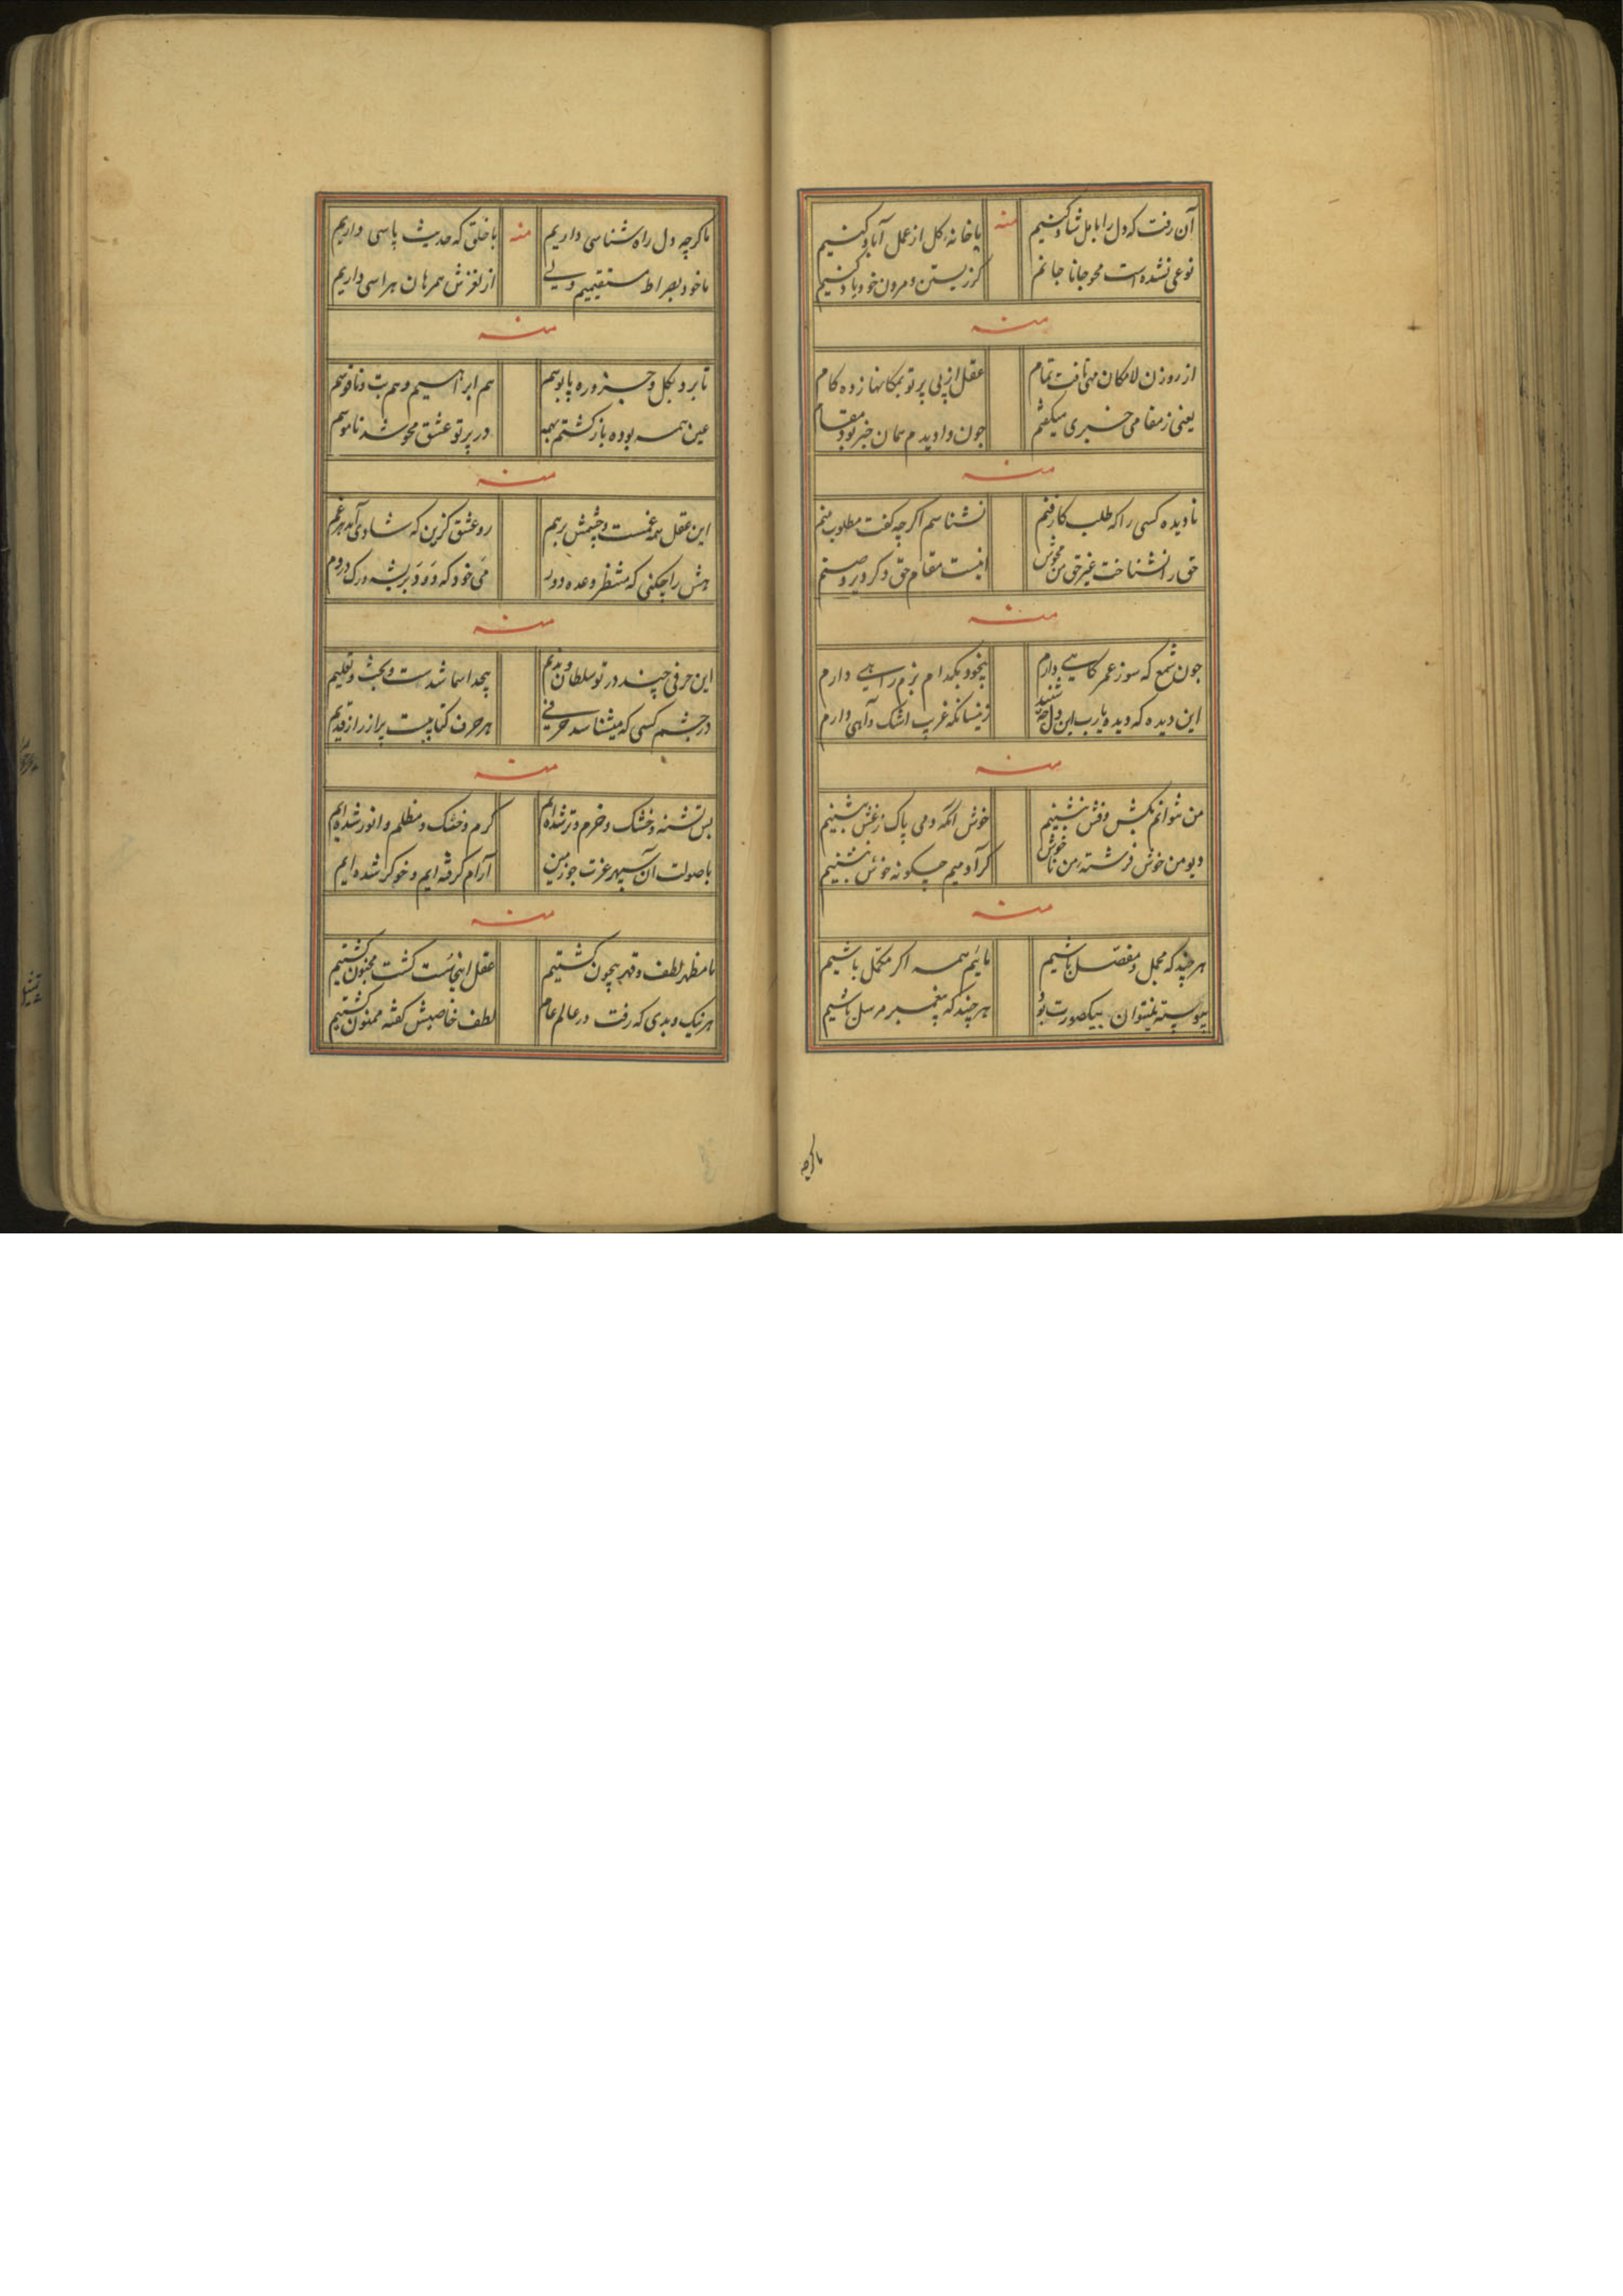 آن رفت که دل را بامل شاد کنیم
یا خانهٔ کل از عمل آباد کنیم
نوعی نشده است محو جانا جانم
کز زیستن و مردن خود یاد کنیم
منه
منه
از روزن لامکان مهی تافت تمام
عقل از پی پرتو بمکانها زده کام
یعنی ز مقامی خبری میکفتم
چون وادیدم همان خبر بود مقام
منه
نادیده کسی را که طلب کار منم
نشناسم اکر چه کفت مطلوب منم
حق را نشناخت غیر حق من محوش
اینست مقام حق دکر دیر و صنم
منه
چون شمع که سوز عمر کاهی دارم
بیخود بکدام بزم راهی دارم
این دیده که دیده یارب این دل چه شنید
زینسانکه غریب اشک و آهی دارم
منه
من نتوانم بکبش و فش بنشینم
خوش آنکه دمی پاک ز غش بنشینم
دیو من خوش فرشتهٔ من ناخوش
کر آدمیم چکونه خوش بنشینم
منه
هر چند که مجمل و مفصل باشیم
مائیم همه اکر مکمل باشیم
پیوسته نمیتوان بیکصورت بود
هر چند که پیغمبر مرسل باشیم
ما کرچه
ما کرچه دل راه شناسی داریم
با خلق که حدیث پاسی داریم
ما خود بصراط مستقیمیم ولی
از لغزش همرهان هراسی داریم
منه
منه
تا برد بکل و جزو ره پابوسم
هم ابراهیم و هم بت و ناقوسم
عین همه بوده بازکشتم بهمه
در پرتو عشق محو شد ناموسم
منه
این عقل همه غمست و چشمش برهم
رو عشق کزین که شادی آمد هر غم
هش را چکنی که منتظر وعده دود
می خود که دود بریشه و رک در دم
منه
این حرفی چند در تو سلطان و ندیم
بیحد اسما شدست و بحث و تعلیم
در چشم کسی که میشناسد حرفی
هر حرف کتابیست پر از راز قدیم
منه
بس تشنه و خشک و خرم و تر شده ایم
کرم و خنک و مظلم و انور شده ایم
با صولت آن سپهر عزت چو زمین
آرام کرفته ایم و خوکر شده ایم
منه
ما مظهر لطف و قهر بیچون کشتیم
عقل اینجا نست کشت مجنون کشتیم
هر نیک و بدی که رفت در عالم عام
لطف خاصیش کفته ممنون کشتیم